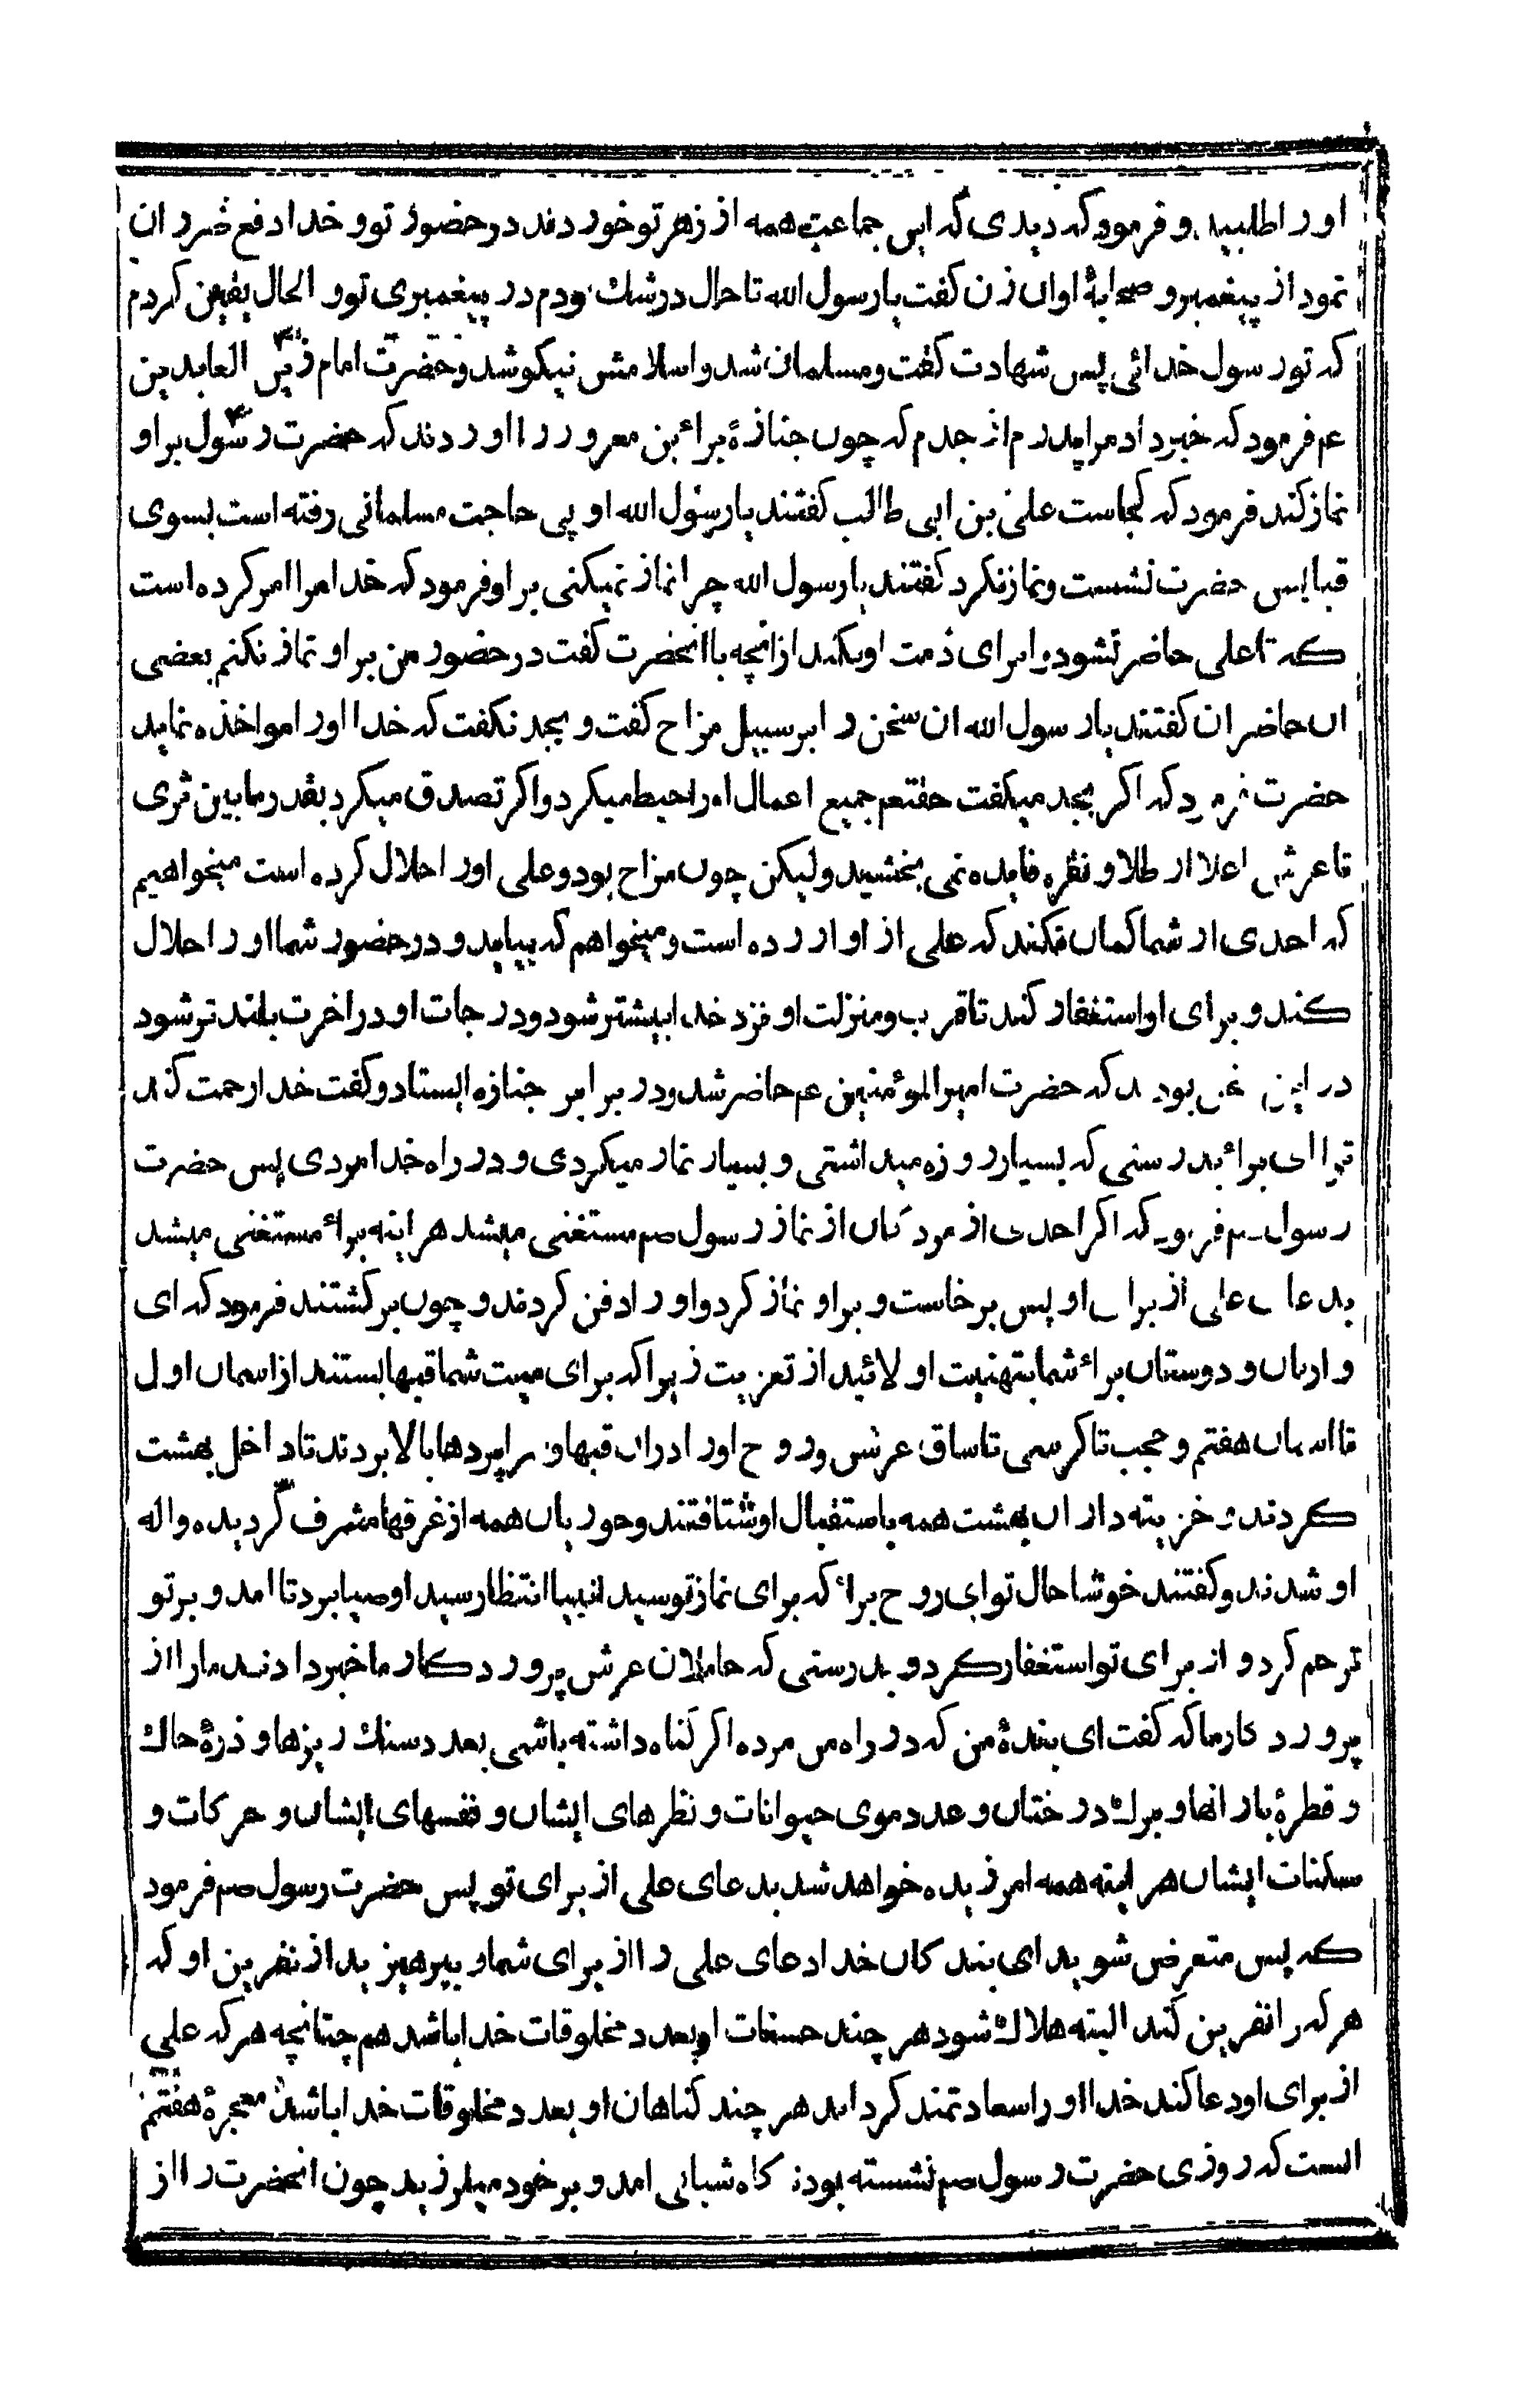 او را طلبید و فرمود که دیدی که این جماعت همه از زهر تو خوردند در حضور تو و خدا دفع ضرر ان
نمود از پیغمبر و صحابهٔ او ان زن کفت یا رسول الله تا حال در شك بودم در پیغمبری تو و الحال یقین کردم
که تو رسول خدائی پس شهادت کفت و مسلمان شد و اسلامش نیکو شد و حضرت امام زین العابدین
عم فرمود که خبر داد مرا پدرم از جدم که چون جنازهٔ براء بن معرور را اوردند که حضرت رسول بر او
نماز کند فرمود که کجاست علی بن ابی طالب کفتند یا رسول الله او پی حاجت مسلمانی رفته است بسوی
قبا پس حضرت نشست و نماز نکرد کفتند یا رسول الله چرا نماز نمیکنی بر او فرمود که خدا مرا امر کرده است
که تا علی حاضر نشود و ابرای ذمت او نکند از انچه با انحضرت کفت در حضور من بر او نماز نکنم بعضی
ان حاضران کفتند یا رسول الله ان سخن را بر سبیل مزاح کفت و بجد نکفت که خدا او را مواخذه نماید
حضرت فرمود که اکر بجد میکفت حقتعم جمیع اعمال او را حبط میکرد و اکر تصدق میکرد بقدر ما بین ثری
تا عرش اعلا از طلا و نقره فایده نمی بخشید و لیکن چون مزاح بود و علی او را حلال کرده است میخواهیم
که احدی از شما کمان نکند که علی از او ازرده است و میخواهم که بیاید و در حضور شما او را حلال
کند و برای او استغفار کند تا قرب و منزلت او نزد خدا بیشتر شود و درجات او در اخرت بلند تر شود
در این سخن بودند که حضرت امیر المؤمنین عم حاضر شد و در برابر جنازه ایستاد و کفت خدا رحمت کند
ترا ای براء بدرستی که بسیار روزه میداشتی و بسیار نماز میکردی و در راه خدا مردی پس حضرت
رسول صم فرمود که اکر احدی از مردکان از نماز رسول صم مستغنی میشد هر اینه براء مستغنی میشد
بدعای علی از برای او پس برخاست و بر او نماز کرد و او را دفن کردند و چون برکشتند فرمود که ای
وارثان و دوستان براء شما بتهنیت اولائید از تعزیت زیرا که برای میت شما قبها بستند از اسمان اول
تا اسمان هفتم و حجب تا کرسی تا ساق عرش و روح او را دران قبها و سراپردها بالا بردند تا داخل بهشت
کردند و خزینه داران بهشت همه باستقبال او شتافتند و حوریان همه از غرفها مشرف گردیده واله
او شدند و کفتند خوشا حال تو ای روح براء که برای نماز تو سید انبیا انتظار سید اوصیا برد تا امد و بر تو
ترحم کرد و از برای تو استغفار کرد و بدرستی که حاملان عرش پروردکار ما خبر دادند ما را از
پروردکار ما که کفت ای بندهٔ من که در راه من مرده اکر کناه داشته باشی بعدد سنك ریزها و ذرهٔ خاك
و قطرهٔ بارانها و برك درختان و عدد موی حیوانات و نظرهای ایشان و نفسهای ایشان و حرکات و
سکنات ایشان هر اینه همه امرزیده خواهد شد بدعای علی از برای تو پس حضرت رسول صم فرمود
که پس متعرض شوید ای بندکان خدا دعای علی را از برای شما و بپرهیزید از نفرین او که
هر که را نفرین کند البته هلاك شود هر چند حسنات او بعدد مخلوقات خدا باشد هم چنانچه هر که علی
از برای او دعا کند خدا او را سعادتمند کرداند هر چند کناهان او بعدد مخلوقات خدا باشد معجزهٔ هفتم
انست که روزی حضرت رسول صم نشسته بودند کاه شبانی امد و بر خود میلرزید چون انحضرت را از